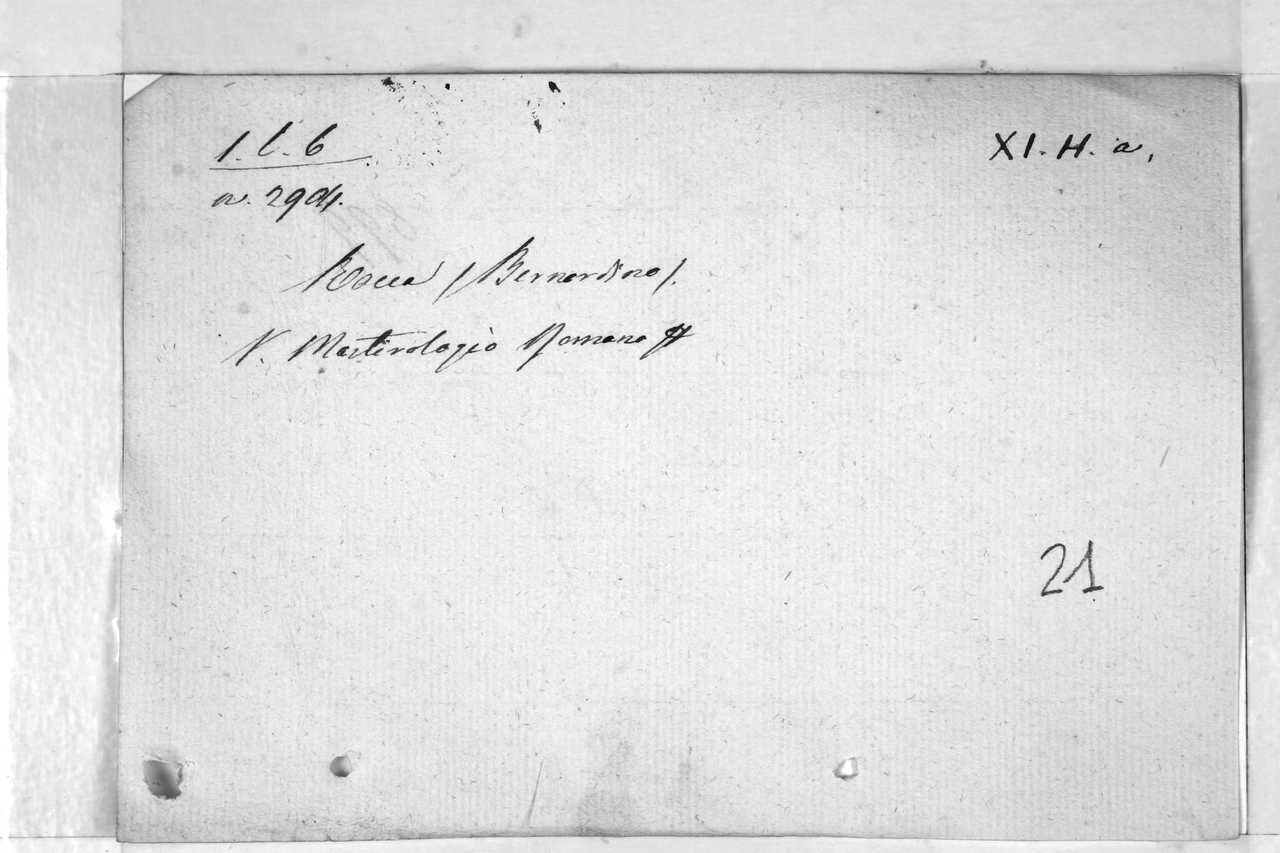 1. C. 6
XI. H. a.
n. 2904.
Rocca (Bernardino).
V. Martirologio Romano
21